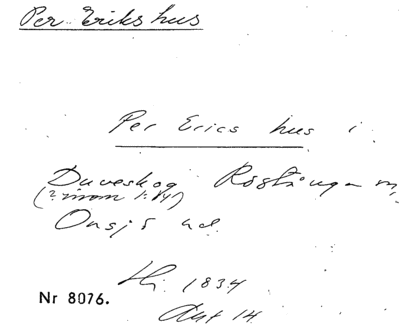 Per Eriks hus
Per Erics hus i
Duveskog Röstånga m,
(? inom 1:141)
Onsjö hd.
Hi. 1834
Avt 14.
Nr 8076.